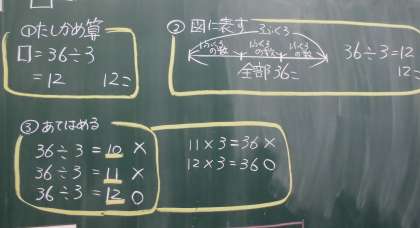 ①たしかめ算
□=36÷3
=12 12=
②図に表す
3ふくろ
1ふくろの数 1ふくろの数 1ふくろの数
全部36こ
36÷3=12
12こ
③あてはめる
36÷3=10 ×
36÷3=11 ×
36÷3=12 ○
11×3=36×
12×3=36○